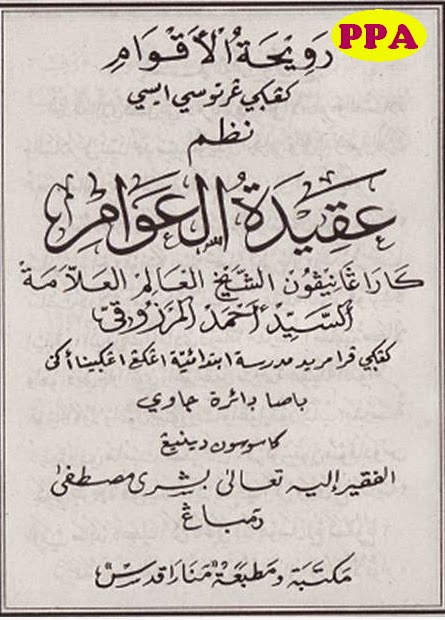 PPA
رويحة الأقوام
كڠڮي ڠرتوسي ايسي
نظم
عقيدة العوام
كاراڠانيڤون الشيخ العالم العلامة
السيد أحمد المرزوقي
كڠڮي ڤرا مريد مدرسة ابتدائية
باصا دائرة جاوي
كاسوسون دينيڠ
الفقير إليه تعالى بشرى مصطفى
رمباڠ
مكتبة ومطبعة "منارا قدس"